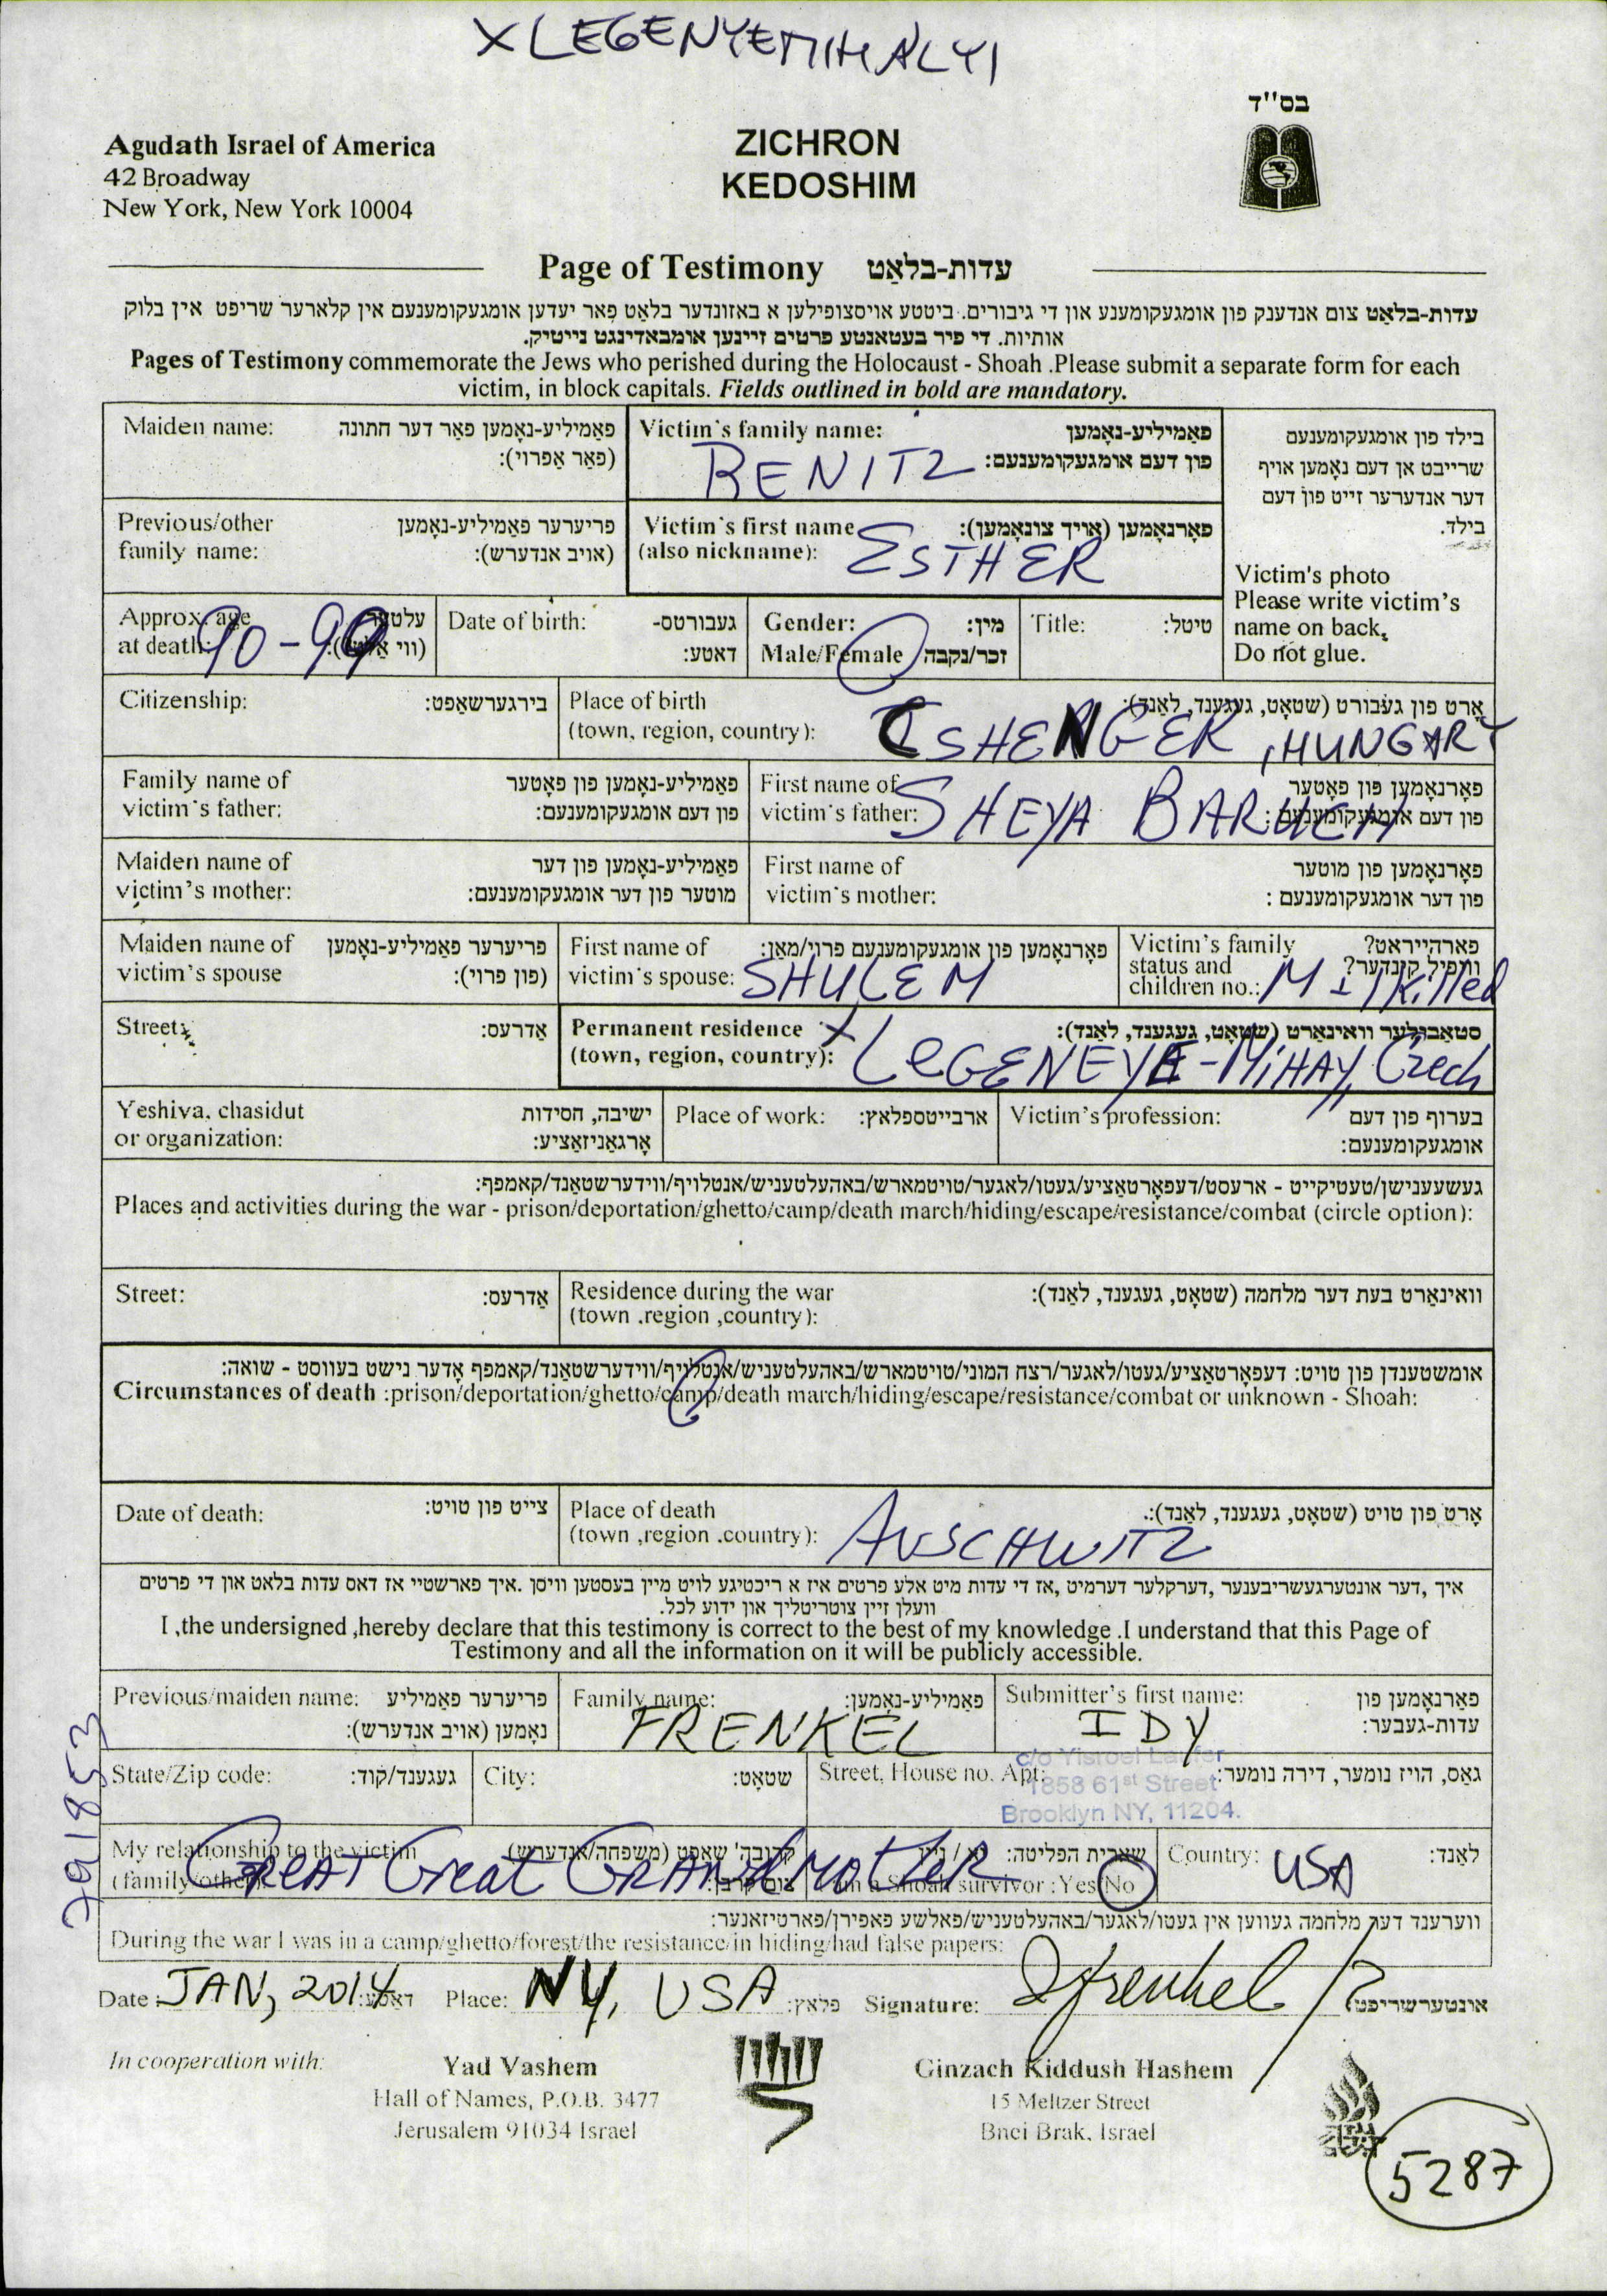 X LEGENYEMIHALYI
בס"ד
Agudath Israel of America
42 Broadway
New York, New York 10004
ZICHRON
KEDOSHIM
Page of Testimony עדות-בלאַט
עדות-בלאַט צום אנדענק פון אומגעקומענע און די גיבורים. ביטטע אויסצופילען א באזונדער בלאַט פאר יעדען אומגעקומענעם אין קלארער שריפט אין בלוק
אותיות. די פיר בעטאנטע פרטים זיינען אומבאדינגט נייטיק.
Pages of Testimony commemorate the Jews who perished during the Holocaust - Shoah .Please submit a separate form for each
victim, in block capitals. Fields outlined in bold are mandatory.
Maiden name: פאַמיליע-נאָמען פאַר דער חתונה
(פאַר אַפרוי):
Victim's family name: פאַמיליע-נאָמען
פון דעם אומגעקומענעם:
BENITZ
בילד פון אומגעקומענעם
שרייבט אן דעם נאָמען אויף
דער אנדערער זייט פון דעם
בילד.
Previous/other פריערער פאַמיליע-נאָמען
family name: (אויב אנדערש):
Victim's first name פאָרנאָמען (אויך צונאָמען):
(also nickname): ESTHER
Victim's photo
Please write victim's
name on back.
Do not glue.
Approx. age עלטער
at death: 90-99
Date of birth: געבורטס-
דאטע:
Gender: מין:
Male/Female זכר/נקבה
Title: טיטל:
Citizenship: בירגערשאַפט:
Place of birth אָרט פון געבורט (שטאָט, געגענד, לאַנד):
(town, region, country): TSHENGER, HUNGARY
Family name of פאַמיליע-נאָמען פון פאָטער
victim's father: פון דעם אומגעקומענעם:
First name of פאָרנאָמען פון פאָטער
victim's father: פון דעם אומגעקומענעם:
SHEYA
Maiden name of פאַמיליע-נאָמען פון דער
victim's mother: מוטער פון דער אומגעקומענעם:
First name of פאָרנאָמען פון מוטער
victim's mother: פון דער אומגעקומענעם :
Maiden name of פריערער פאַמיליע-נאָמען
victim's spouse (פון פרוי):
First name of פאָרנאָמען פון אומגעקומענעם פרוי/מאַן:
victim's spouse: SHULEM
Victim's family פארהייראט?
status and וויפיל קינדער?
children no.: M - 1 Killed
Street: אַדרעס:
Permanent residence X סטאַבילער וואוינאָרט (שטאָט, געגענד, לאַנד):
(town, region, country): LEGENEYE-MIHAY, Czech
Yeshiva, chasidut ישיבה, חסידות
or organization: אָרגאַניזאַציע:
Place of work: ארבייטספלאץ:
Victim's profession: בערוף פון דעם
אומגעקומענעם:
געשעענישן/טעטיקייט - ארעסט/דעפאָרטאַציע/געטו/לאגער/טויטמארש/באהעלטעניש/אנטלויף/ווידערשטאַנד/קאמפף:
Places and activities during the war - prison/deportation/ghetto/camp/death march/hiding/escape/resistance/combat (circle option):
Street: אַדרעס:
Residence during the war וואוינאָרט בעת דער מלחמה (שטאָט, געגענד, לאַנד):
(town .region ,country):
אומשטענדן פון טויט: דעפאָרטאַציע/געטו/לאגער/רצח המוני/טויטמארש/באהעלטעניש/אנטלויף/ווידערשטאַנד/קאמפף אָדער נישט בעווסט - שואה:
Circumstances of death :prison/deportation/ghetto/camp/death march/hiding/escape/resistance/combat or unknown - Shoah:
Date of death: צייט פון טויט:
Place of death אָרט פון טויט (שטאָט, געגענד, לאַנד):
(town ,region .country): AUSCHWITZ
איך ,דער אונטערגעשריבענער ,דערקלער דערמיט ,אז די עדות מיט אלע פרטים איז א ריכטיגע לויט מיין בעסטען וויסן .איך פארשטיי אז דאס עדות בלאט און די פרטים
וועלן זיין צוטריטליך און ידוע לכל.
I ,the undersigned ,hereby declare that this testimony is correct to the best of my knowledge .I understand that this Page of
Testimony and all the information on it will be publicly accessible.
Previous/maiden name: פריערער פאַמיליע
נאָמען (אויב אנדערש):
Family name: פאַמיליע-נאָמען:
FRENKEL
Submitter's first name: פאַרנאָמען פון
עדות-געבער:
IDY
State/Zip code: געגענד/קוד:
City: שטאָט:
Street, House no. Apt: גאַס, הויז נומער, דירה נומער:
c/o Yisroel
1858 61st Street
Brooklyn NY, 11204.
My relationship to the victim
(family/other
GREAT Great GRANDMOTHER
שארית הפליטה:
I am a Shoah survivor :Yes/No
Country: USA לאַנד:
ווערענד דער מלחמה געווען אין געטו/לאגער/באהעלטעניש/פאלשע פאפירן/פארטיזאנער:
During the war I was in a camp/ghetto/forest/the resistance/in hiding/had false papers:
Date : JAN, 2014 דאטע: Place: NY, USA פלאץ: Signature: Ifrenkel אונטערשריפט
In cooperation with:
Yad Vashem
Hall of Names, P.O.B. 3477
Jerusalem 91034 Israel
Ginzach Kiddush Hashem
15 Meltzer Street
Bnei Brak, Israel
5287